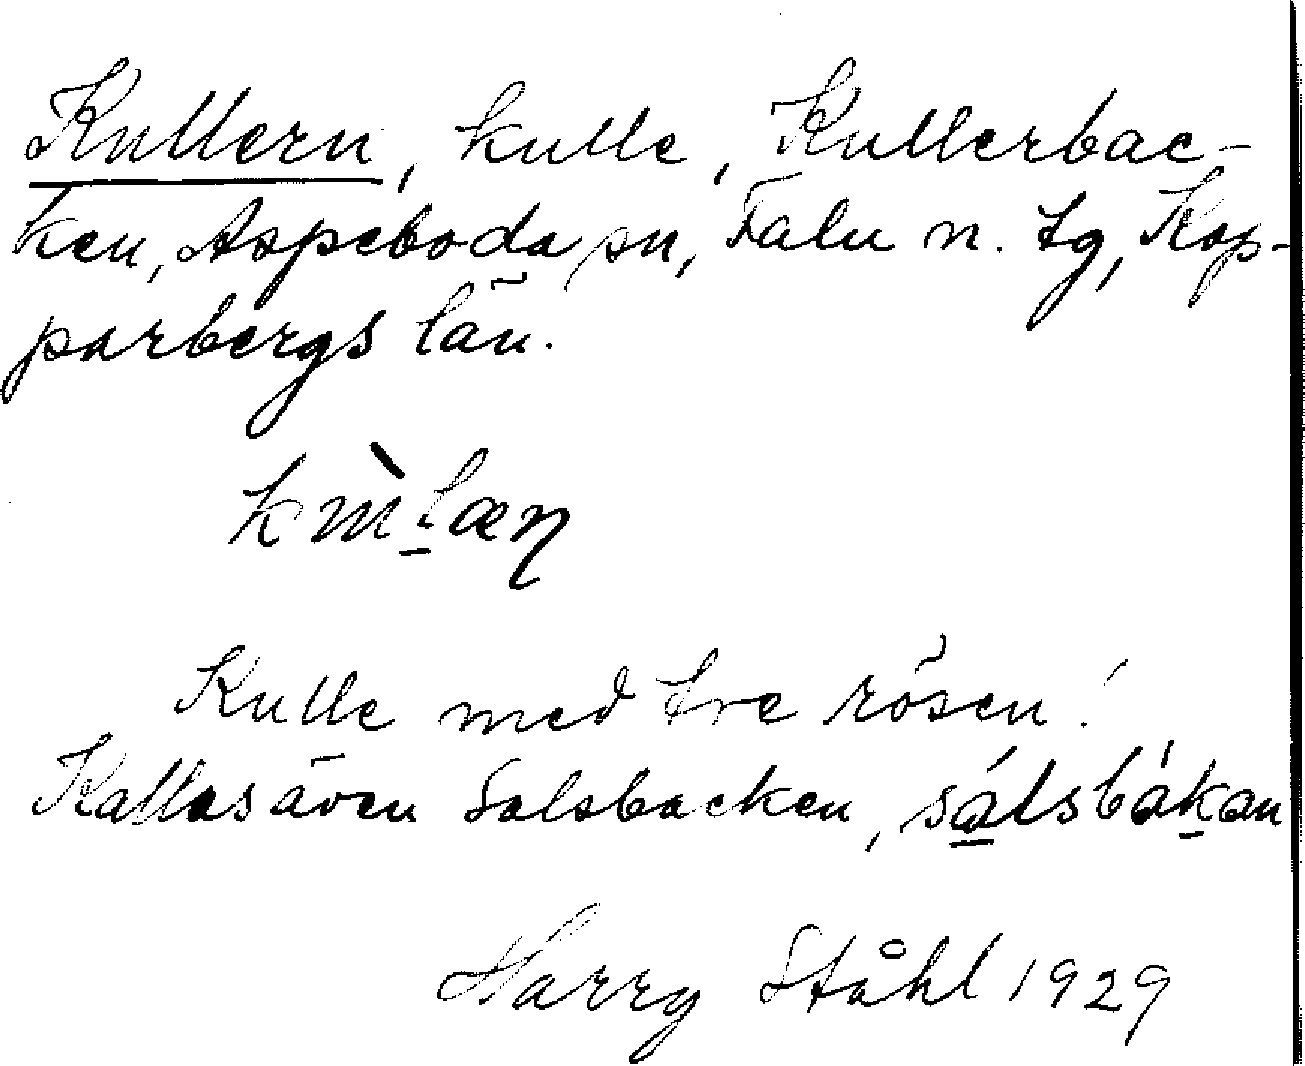 Kullern, kulle, Kullerbac-
ken, Aspeboda sn, Falu n. tg, Kop-
parbergs län.
Kulle med tre rösen!
Kallas även Salsbacken, sálsbákan
Harry Ståhl 1929